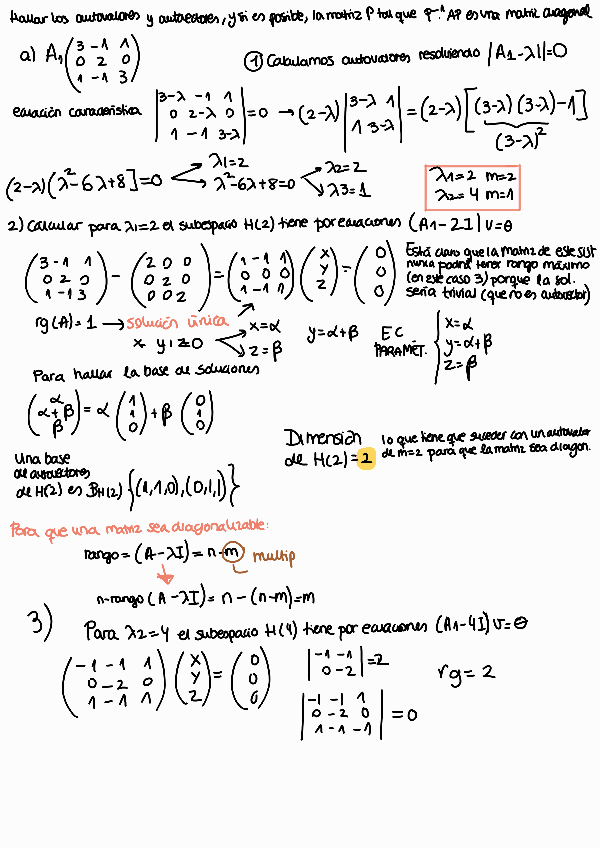 Hallar los autovalores y autovectores, y si es posible, la matriz P tal que P⁻¹ AP es una matriz diagonal
a) A₁ (3 -1 1 / 0 2 0 / 1 -1 3)
① Calculamos autovalores resolviendo |A₁-λI|=0
ecuación característica |3-λ -1 1 / 0 2-λ 0 / 1 -1 3-λ| =0 → (2-λ) |3-λ 1 / 1 3-λ| = (2-λ) [(3-λ)(3-λ)-1]
(3-λ)²
(2-λ)(λ²-6λ+8]=0
λ1=2
λ²-6λ+8=0
λ2=2
λ3=1
λ1=2 m=2
λ2=4 m=1
2) Calcular para λ1=2 el subespacio H(2) tiene por ecuaciones (A1-2I)v=θ
(3 -1 1 / 0 2 0 / 1 -1 3) - (2 0 0 / 0 2 0 / 0 0 2) = (1 -1 1 / 0 0 0 / 1 -1 1) (x / y / z) = (0 / 0 / 0)
Está claro que la matriz de este sist
nunca podrá tener rango máximo
(en este caso 3) porque la sol.
sería trivial (que no es autovector)
rg(A)=1 → solución única
x=α
z=β
y=α+β
EC PARAMÉT. {x=α / y=α+β / z=β
Para hallar la base de soluciones
(α / α+β / β) = α (1 / 1 / 0) + β (0 / 1 / 0)
Dimensión
de H(2)=2
lo que tiene que suceder con un autovalor
de m=2 para que la matriz sea diagon.
Una base
de autovectores
de H(2) es B_H(2) {(1,1,0),(0,1,1)}
Para que una matriz sea diagonalizable:
rango=(A-λI)=n-m multip
n-rango(A-λI)= n-(n-m)=m
3)
Para λ2=4 el subespacio H(4) tiene por ecuaciones (A1-4I)v=θ
(-1 -1 1 / 0 -2 0 / 1 -1 1) (x / y / z) = (0 / 0 / 0)
|-1 -1 / 0 -2| =2
rg=2
|-1 -1 1 / 0 -2 0 / 1 -1 -1| =0